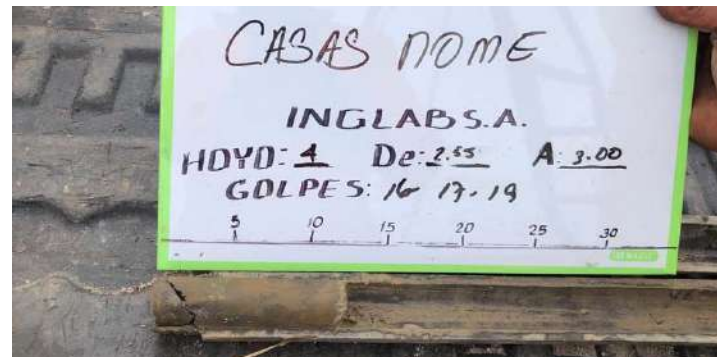 CASAS NOME
INGLAB S.A.
HOYO: 4 De: 2.55 A: 3.00
GOLPES: 16 17.19
5 10 15 20 25 30